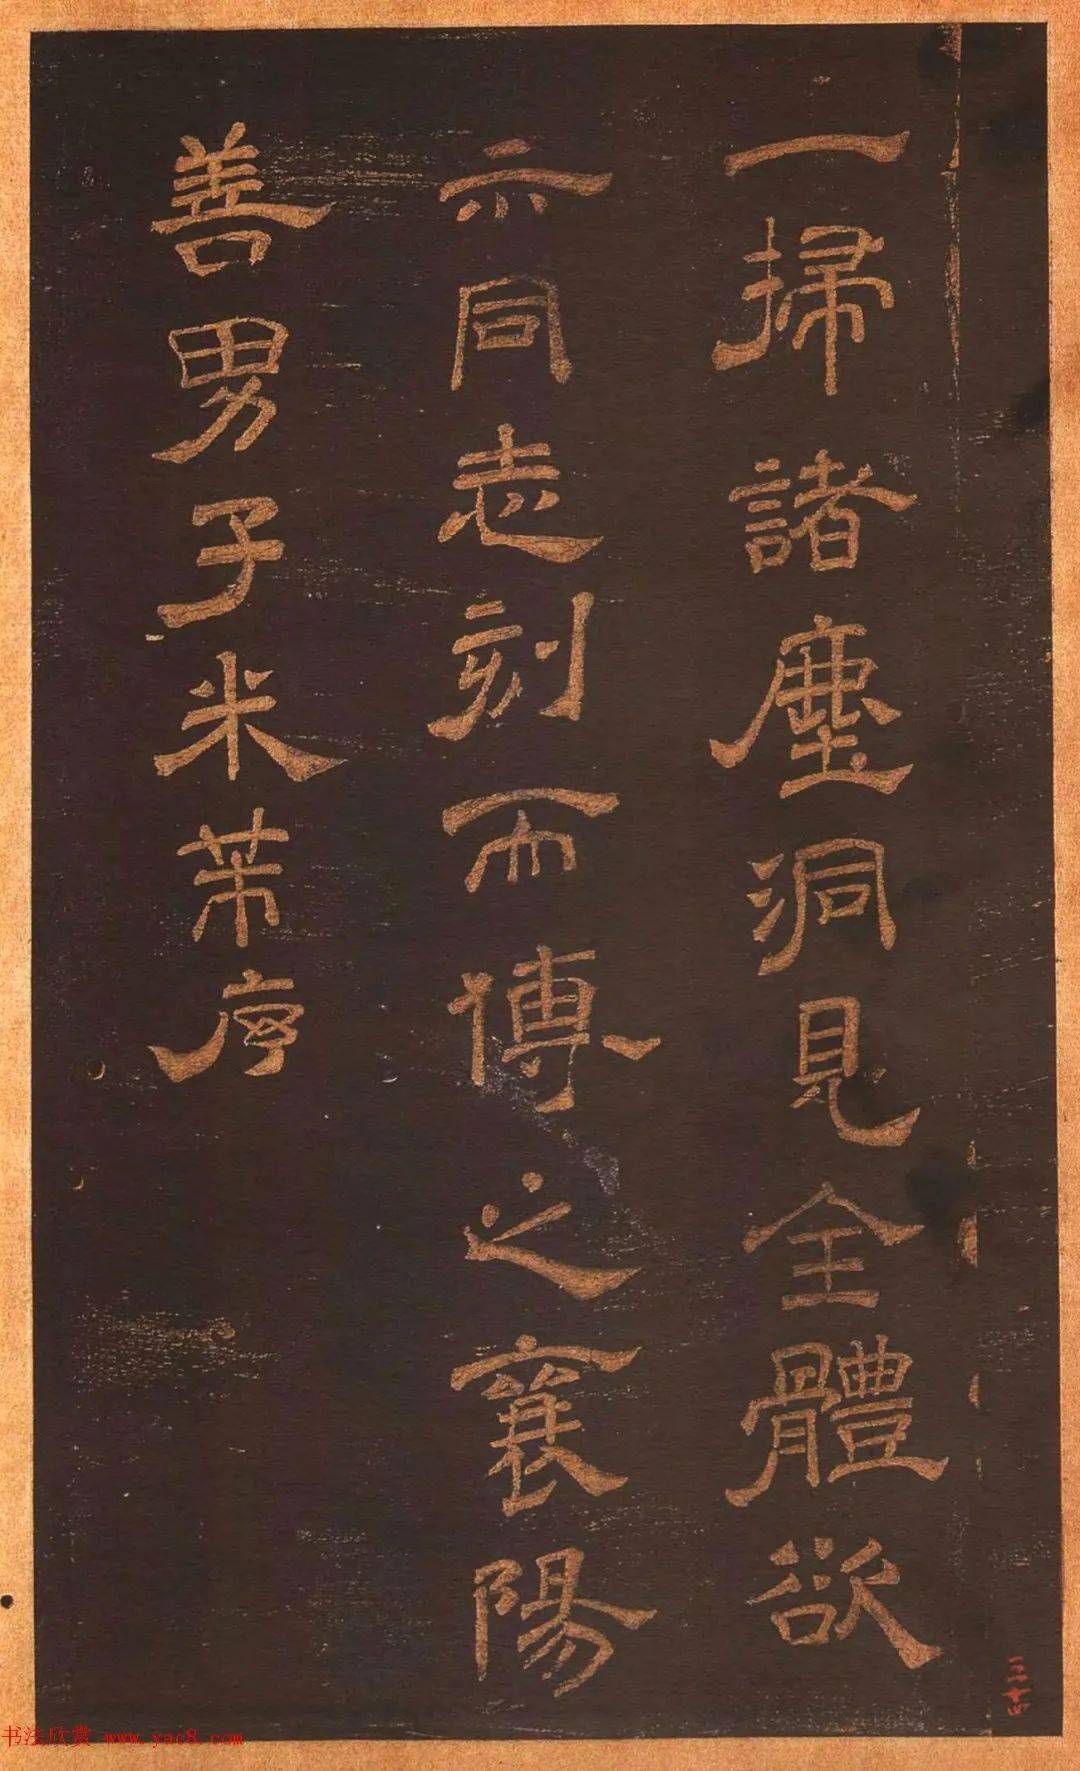 一掃諸塵洞見全體欲
示同志刻而博之襄陽
善男子米芾序
三十四
书法欣赏 www.yac8.com